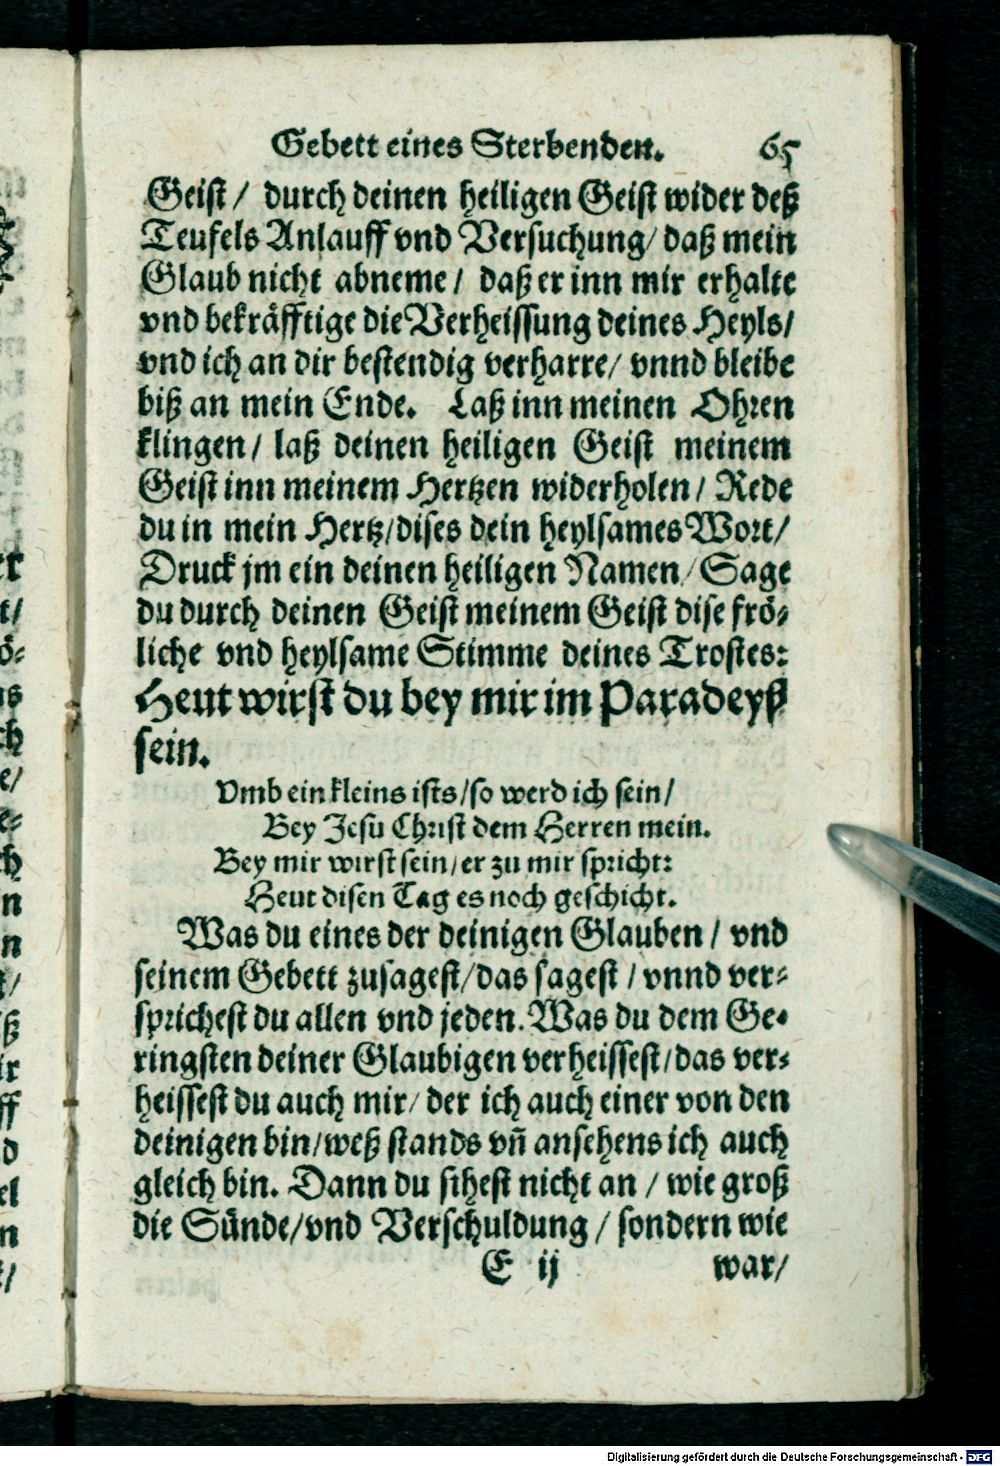 Gebett eines Sterbenden. 65
Geist / durch deinen heiligen Geist wider deß
Teufels Anlauff vnd Versuchung / daß mein
Glaub nicht abneme / daß er inn mir erhalte
vnd bekräfftige die Verheissung deines Heyls /
vnd ich an dir bestendig verharre / vnnd bleibe
biß an mein Ende. Laß inn meinen Ohren
klingen / laß deinen heiligen Geist meinem
Geist inn meinem Hertzen widerholen / Rede
du in mein Hertz / dises dein heylsames Wort /
Druck jm ein deinen heiligen Namen / Sage
du durch deinen Geist meinem Geist dise frö-
liche vnd heylsame Stimme deines Trostes:
Heut wirst du bey mir im Paradeyß
sein.
Vmb ein kleins ists / so werd ich sein /
Bey Jesu Christ dem Herren mein.
Bey mir wirst sein / er zu mir spricht:
Heut disen Tag es noch geschicht.
Was du eines der deinigen Glauben / vnd
seinem Gebett zusagest / das sagest / vnnd ver-
sprichest du allen vnd jeden. Was du dem Ge-
ringsten deiner Glaubigen verheissest / das ver-
heissest du auch mir / der ich auch einer von den
deinigen bin / weß stands vn̄ ansehens ich auch
gleich bin. Dann du sihest nicht an / wie groß
die Sünde / vnd Verschuldung / sondern wie
E ij war /
Digitalisierung gefördert durch die Deutsche Forschungsgemeinschaft - DFG